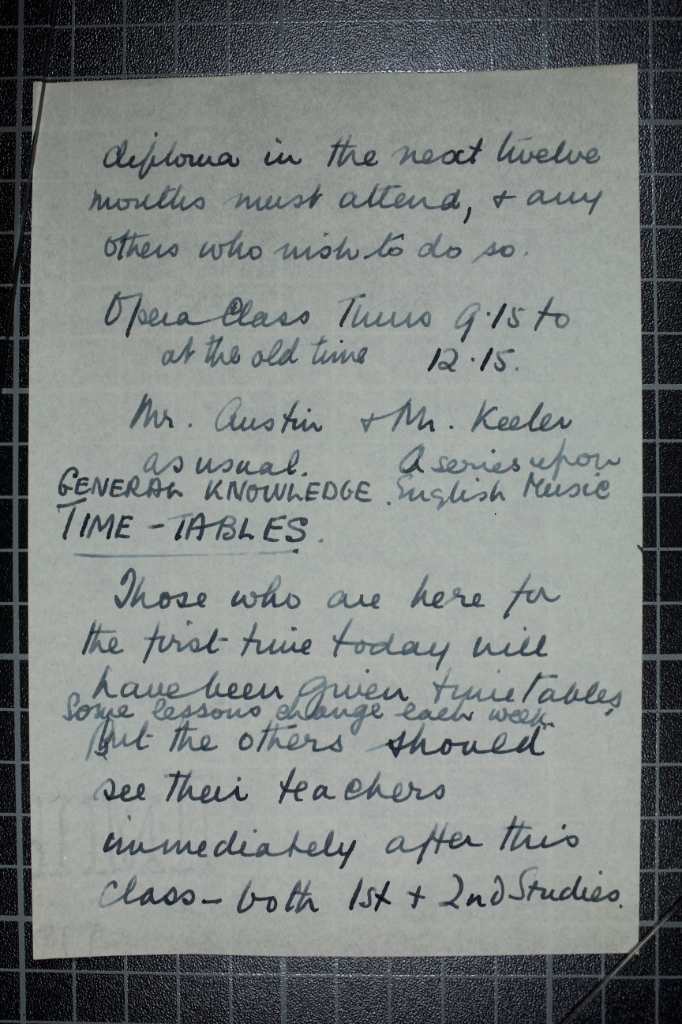 diploma in the next twelve
months must attend, + any
others who wish to do so.
Opera Class Thurs 9.15 to
at the old time 12.15.
Mr. Austin + Mr. Keeler
as usual. A series upon
GENERAL KNOWLEDGE. English Music
TIME-TABLES.
Those who are here for
the first time today will
have been given timetables,
Some lessons change each week.
But the others should
see their teachers
immediately after this
class - both 1st + 2nd Studies.